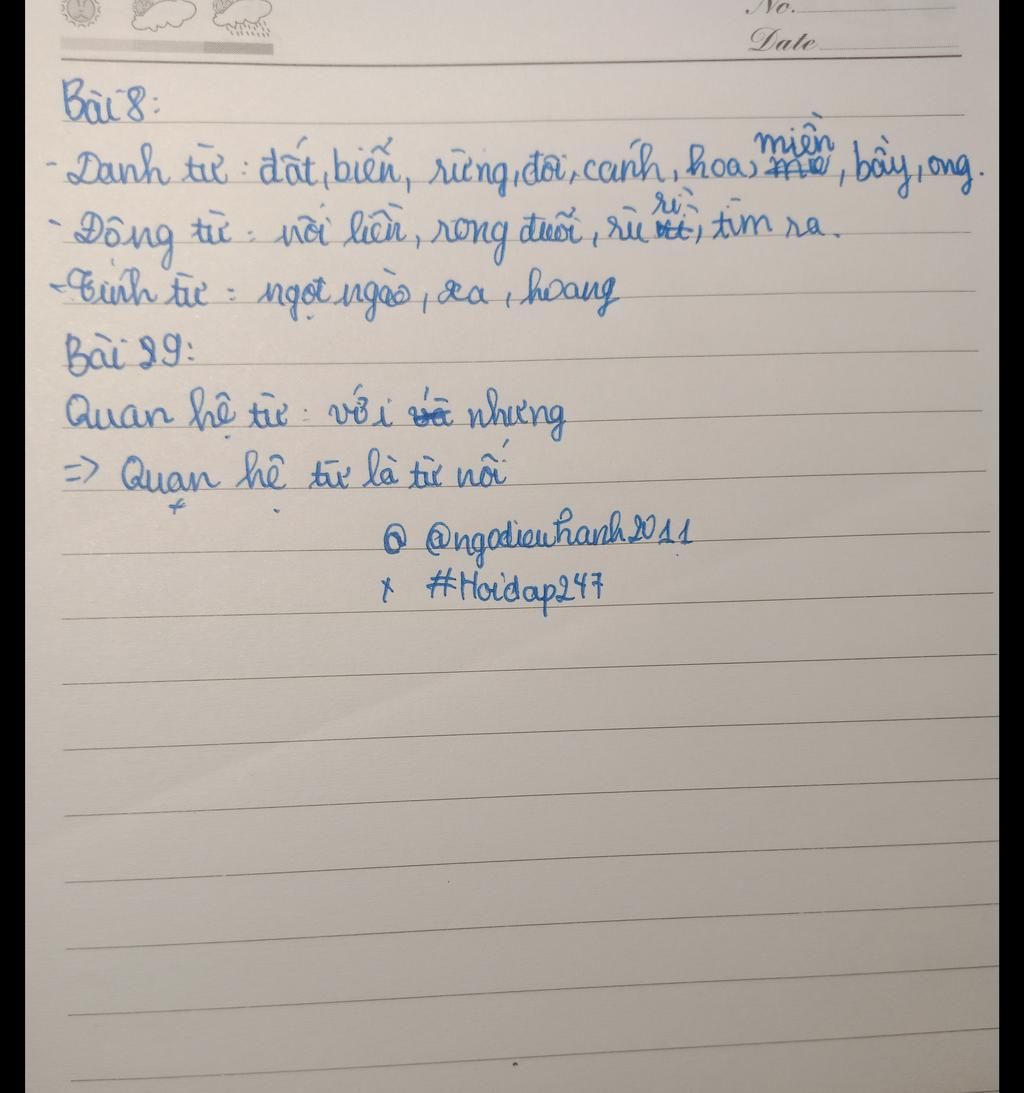 No.
Date
Bài 8:
- Danh từ: đất, biển, rừng, đôi, cánh, hoa, miền, bầy, ong.
- Động từ: nối liền, rong đuổi, rù rì, tìm ra.
- Tính từ: ngọt ngào, xa, hoang
Bài 29:
Quan hệ từ: với nhưng
=> Quan hệ từ là từ nối
@ @ngodieuhanh2011
x #Hoidap247